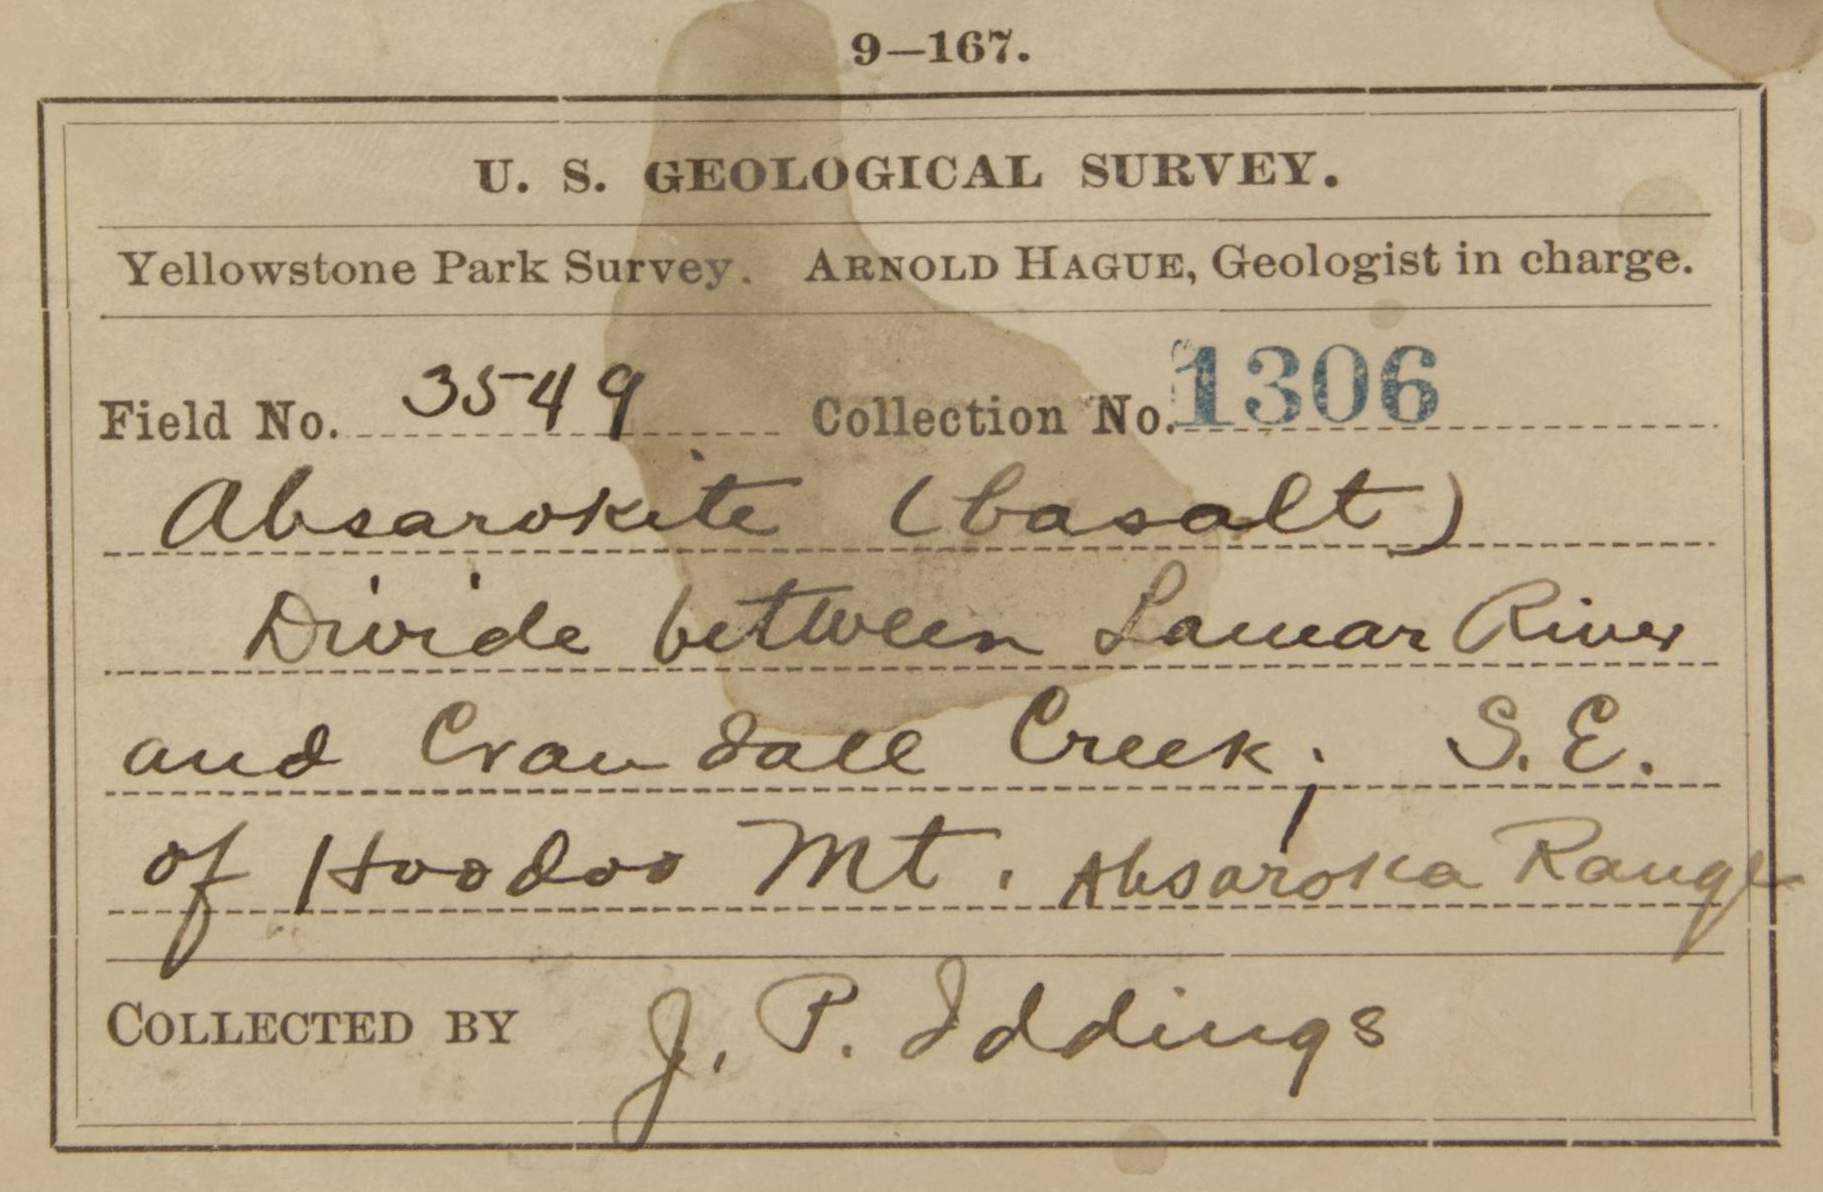 9—167.
U. S. GEOLOGICAL SURVEY.
Yellowstone Park Survey. ARNOLD HAGUE, Geologist in charge.
Field No. 3549 Collection No. 1306
Absarokite (basalt)
Divide between Lamar River
and Crandall Creek; S.E.
of Hoodoo Mt. Absaroka Range
COLLECTED BY J. P. Iddings